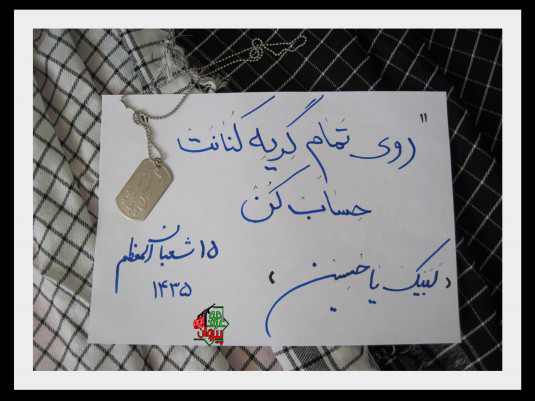 "روی تَمامِ گریه کُنانَت
حِسابْ کُنْ
(لَبَیک یا حُسِین)
۱۵ شعبان المعظم
۱۴۳۵